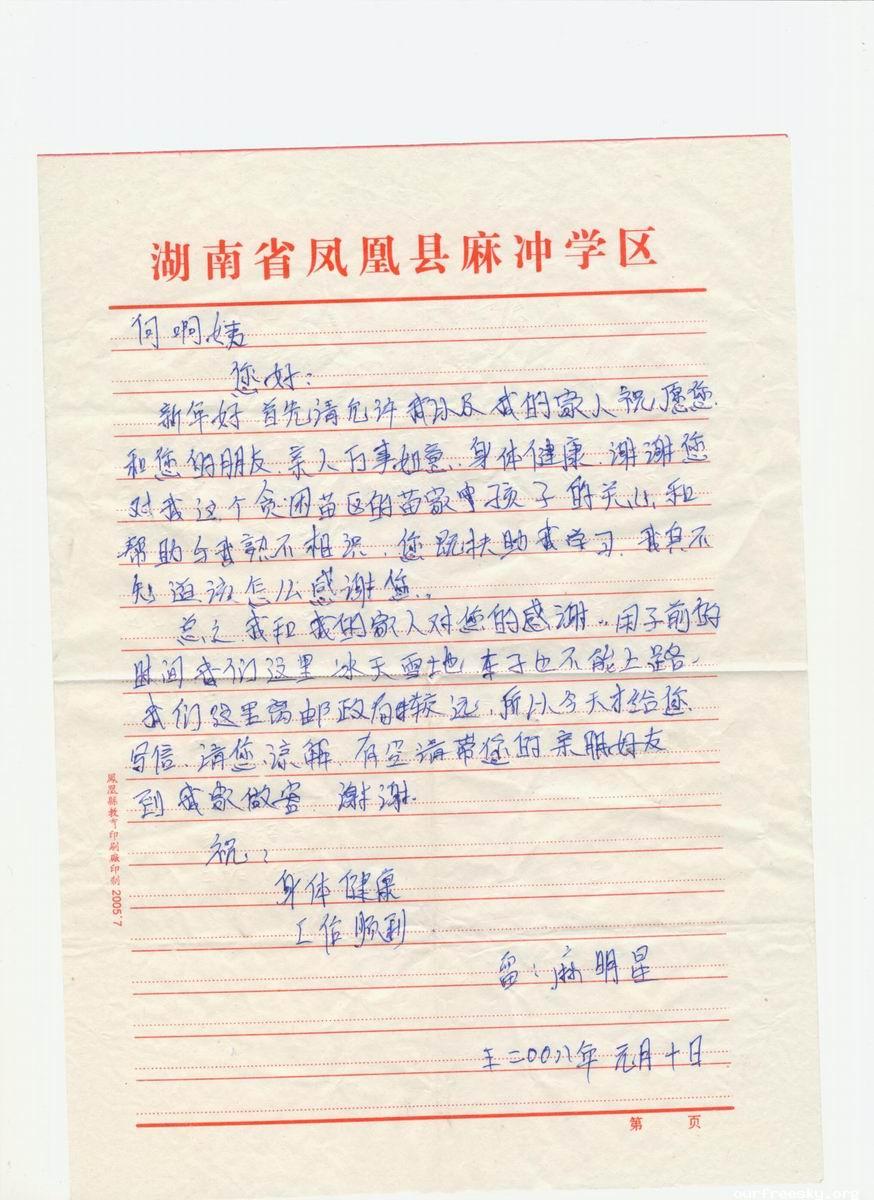 湖南省凤凰县麻冲学区
何啊姨
您好:
新年好 首先请允许我以及我的家人祝愿您
和您的朋友、亲人百事如意、身体健康、谢谢您
对我这个贫困苗区的苗家中孩子的关心和
帮助与我熟不相识、您既扶助我学习、我真不
知道该怎么感谢您。
总之我和我的家人对您的感谢。用于前的
时间我们这里冰天雪地 车子也不能上路、
我们这里离邮政局较远、所以今天才给您
写信、请您谅解、有空请带您的亲朋好友
到我家做客 谢谢.
祝:
身体健康
工作顺利
留:麻明星
二00八年 元月十日
第 页
凤凰县教育印刷厂印制 2005.7
ourfreesky.org